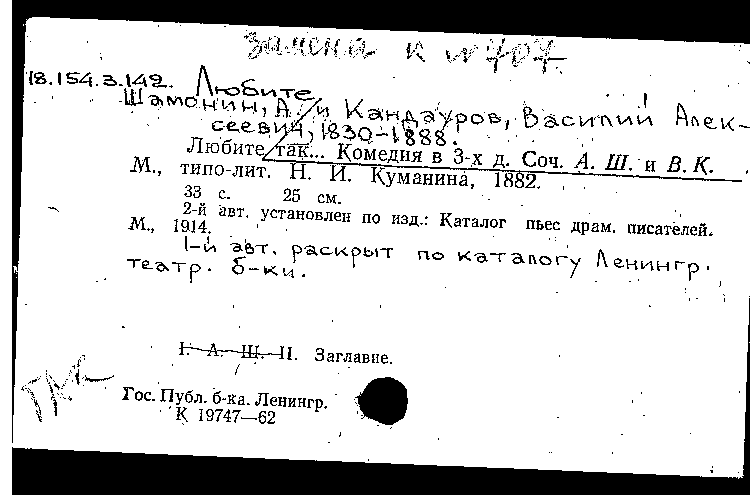 замена к № 707.
18.154.3.142. Любите
Шамонин, А. и Кандауров, Василий Алек-
сеевич, 1830-1888.
Любите так... Комедия в 3-х д. Соч. А. Ш. и В. К.
М., типо-лит. Н. И. Куманина, 1882.
33 с. 25 см.
2-й авт. установлен по изд.: Каталог пьес драм. писателей.
М., 1914.
1-й авт. раскрыт по каталогу Ленингр.
театр. б-ки.
I. А. Ш. II. Заглавие.
Гос. Публ. б-ка. Ленингр.
К 19747—62